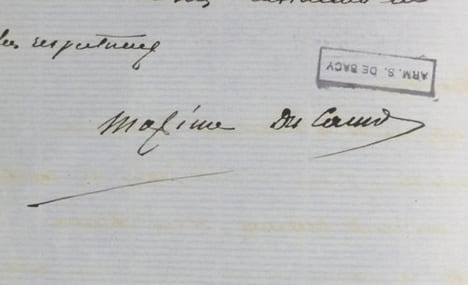 les respectueux
ARM. S. DE BACY
Maxime Du Camp